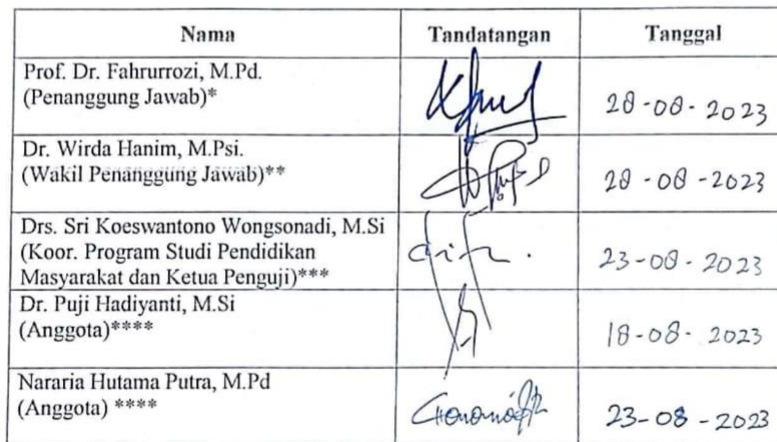 Nama Tandatangan Tanggal
Prof. Dr. Fahrurrozi, M.Pd.
(Penanggung Jawab)*
28-08-2023
Dr. Wirda Hanim, M.Psi.
(Wakil Penanggung Jawab)**
28-08-2023
Drs. Sri Koeswantono Wongsonadi, M.Si
(Koor. Program Studi Pendidikan
Masyarakat dan Ketua Penguji)***
23-08-2023
Dr. Puji Hadiyanti, M.Si
(Anggota)****
18-08-2023
Nararia Hutama Putra, M.Pd
(Anggota) ****
23-08-2023